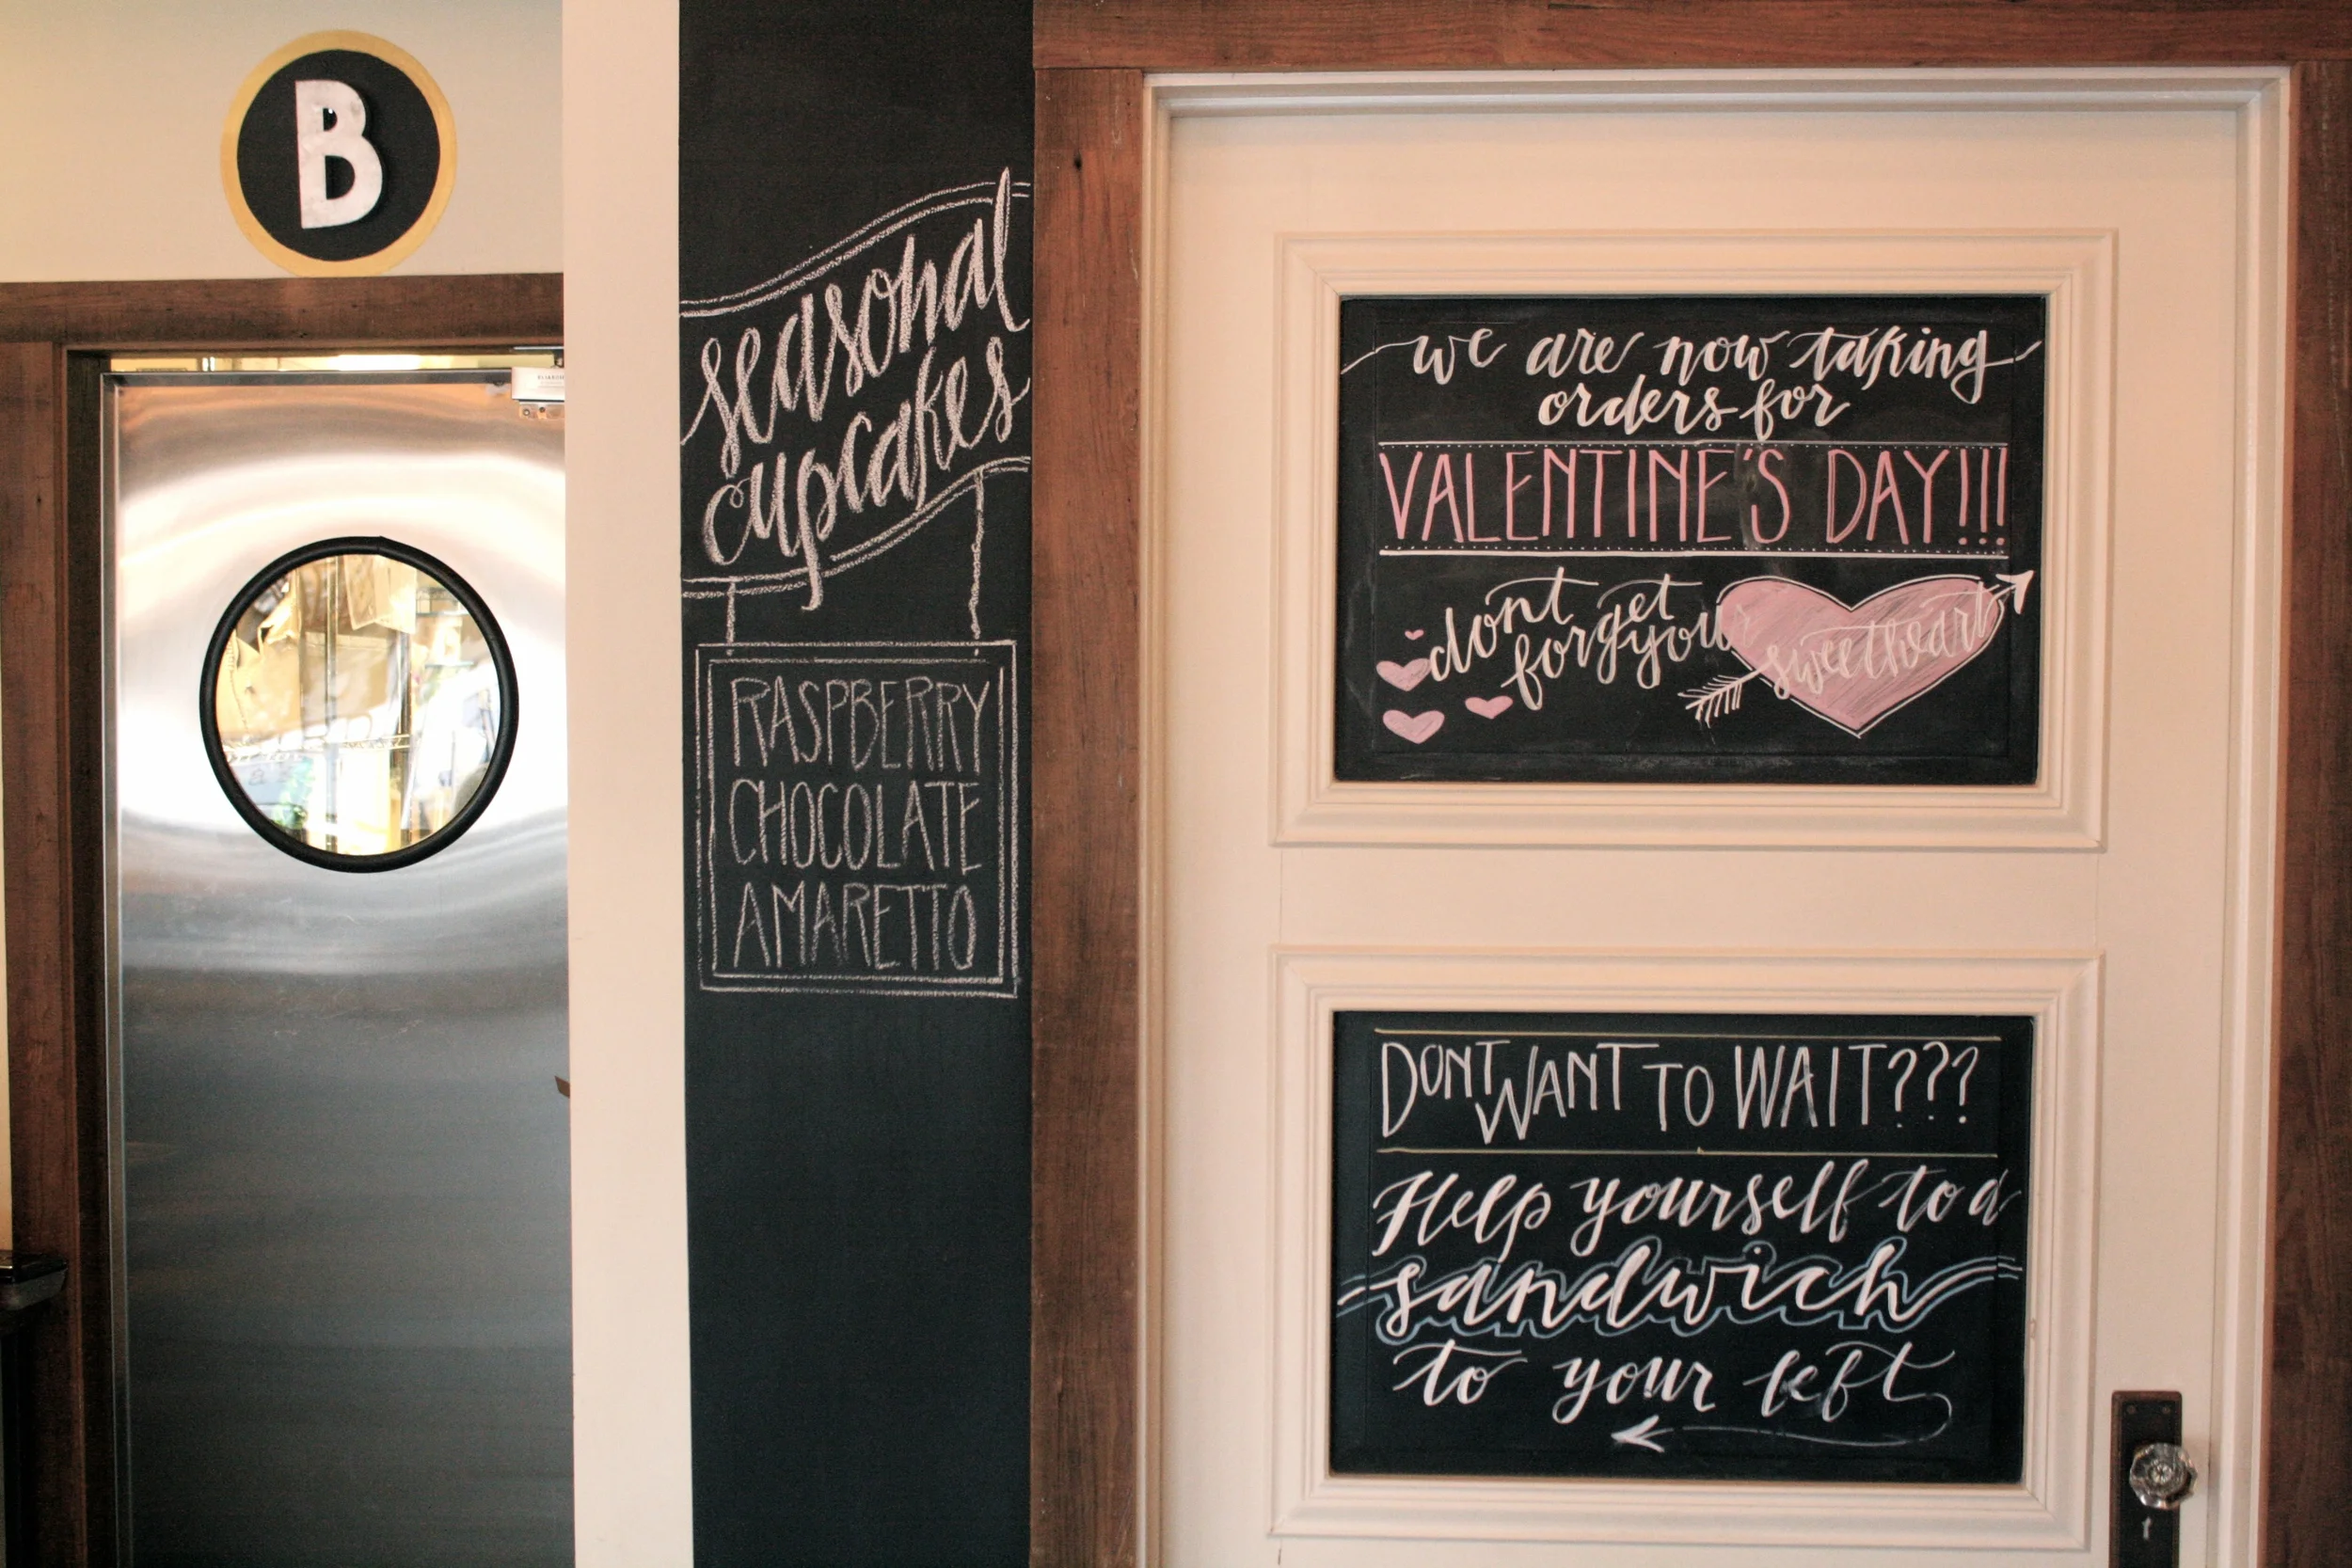 B
seasonal
cupcakes
RASPBERRY
CHOCOLATE
AMARETTO
we are now taking
orders for
VALENTINE'S DAY!!!
dont forget
your sweetheart
DONT WANT TO WAIT???
Help yourself to a
sandwich
to your left